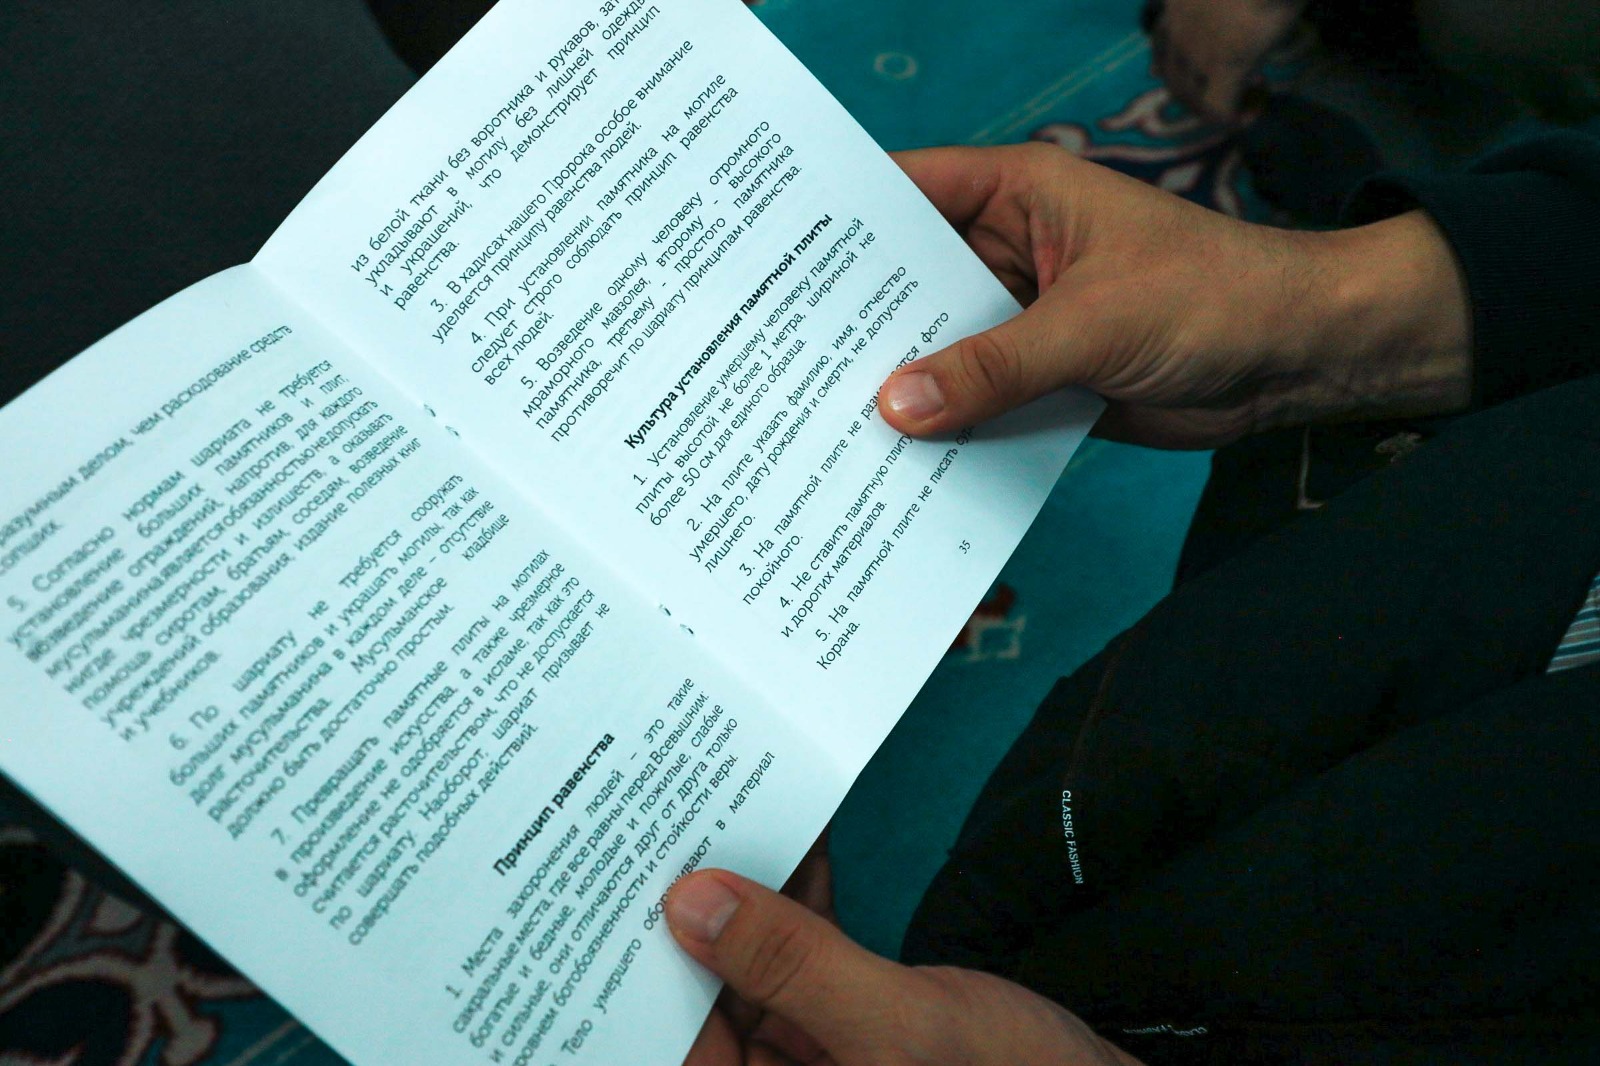 разумным делом, чем расходование средств
5. Согласно нормам шариата не требуется
установление больших памятников и плит,
возведение ограждений, напротив, для каждого
мусульманина является обязанностью не допускать
нигде чрезмерности и излишеств, а оказывать
помощь сиротам, братьям, соседям, возведение
учреждений образования, издание полезных книг
и учебников.
6. По шариату не требуется сооружать
больших памятников и украшать могилы, так как
долг мусульманина в каждом деле - отсутствие
расточительства. Мусульманское кладбище
должно быть достаточно простым.
7. Превращать памятные плиты на могилах
в произведение искусства, а также чрезмерное
оформление не одобряется в исламе, так как это
считается расточительством, что не допускается
по шариату. Наоборот, шариат призывает не
совершать подобных действий.
Принцип равенства
1. Места захоронения людей – это такие
сакральные места, где все равны перед Всевышним:
богатые и бедные, молодые и пожилые, слабые
и сильные, они отличаются друг от друга только
уровнем богобоязненности и стойкости веры.
Тело умершего в материал
из белой ткани без воротника и рукавов,
укладывают в могилу без лишней одежды
и украшений, что демонстрирует принцип
равенства.
3. В хадисах нашего Пророка особое внимание
уделяется принципу равенства людей.
4. При установлении памятника на могиле
следует строго соблюдать принцип равенства
всех людей.
5. Возведение одному человеку огромного
мраморного мавзолея, второму - высокого
памятника, третьему - простого памятника
противоречит по шариату принципам равенства.
Культура установления памятной плиты
1. Установление умершему человеку памятной
плиты высотой не более 1 метра, шириной не
более 50 см для единого образца.
2. На плите указать фамилию, имя, отчество
умершего, дату рождения и смерти, не допускать
лишнего.
3. На памятной плите не фото
покойного.
4. Не ставить памятную плиту
и дорогих материалов.
5. На памятной плите не писать
Корана.
35
CLASSIC FASHION